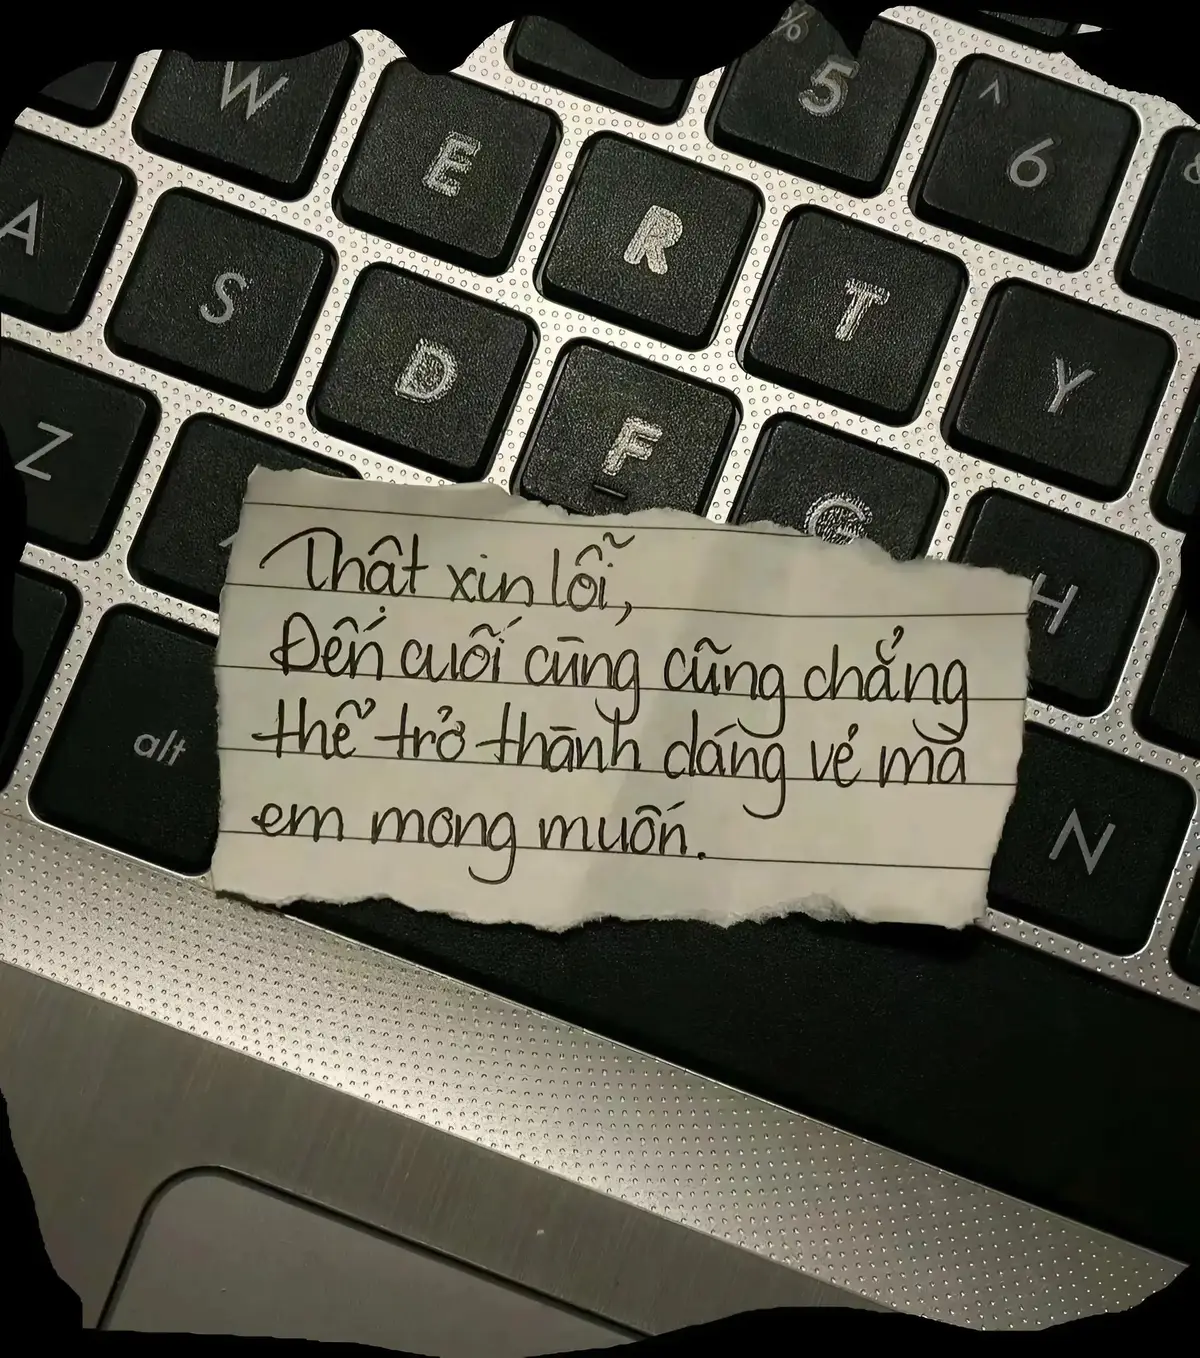 %
5
^
6
W
E
R
T
Y
A
S
D
F
G
H
Z
alt
N
Thật xin lỗi,
Đến cuối cùng cũng chẳng
thể trở thành dáng vẻ mà
em mong muốn.